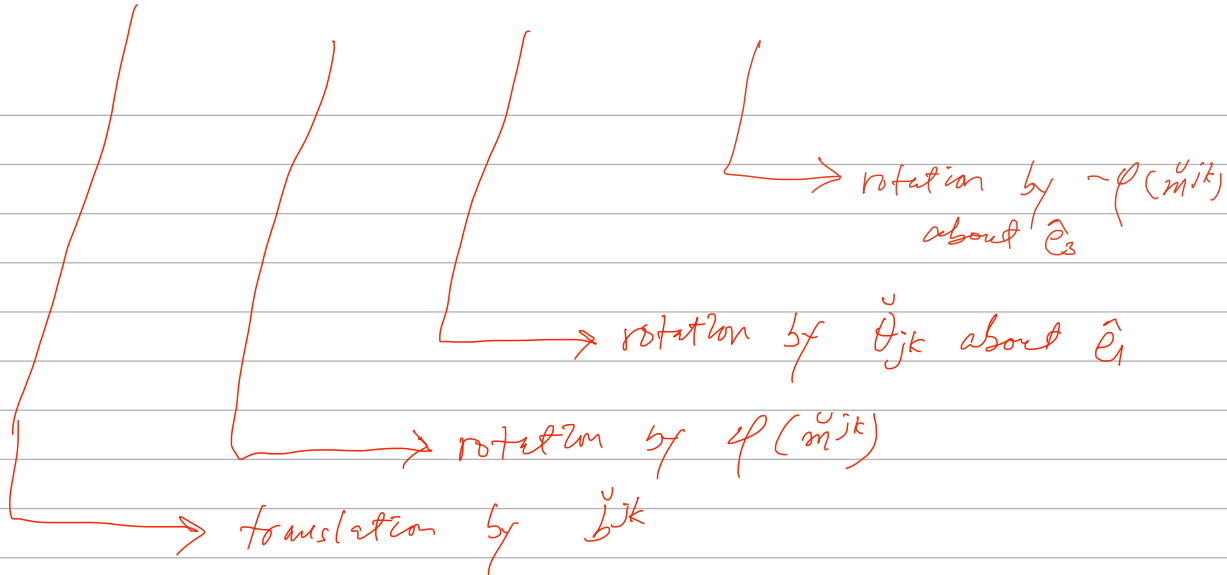 rotation by -φ(m̆ʲᵏ)
about ê₃
rotation by θ̆ⱼₖ about ê₁
rotation by φ(m̆ʲᵏ)
translation by b̆ʲᵏ